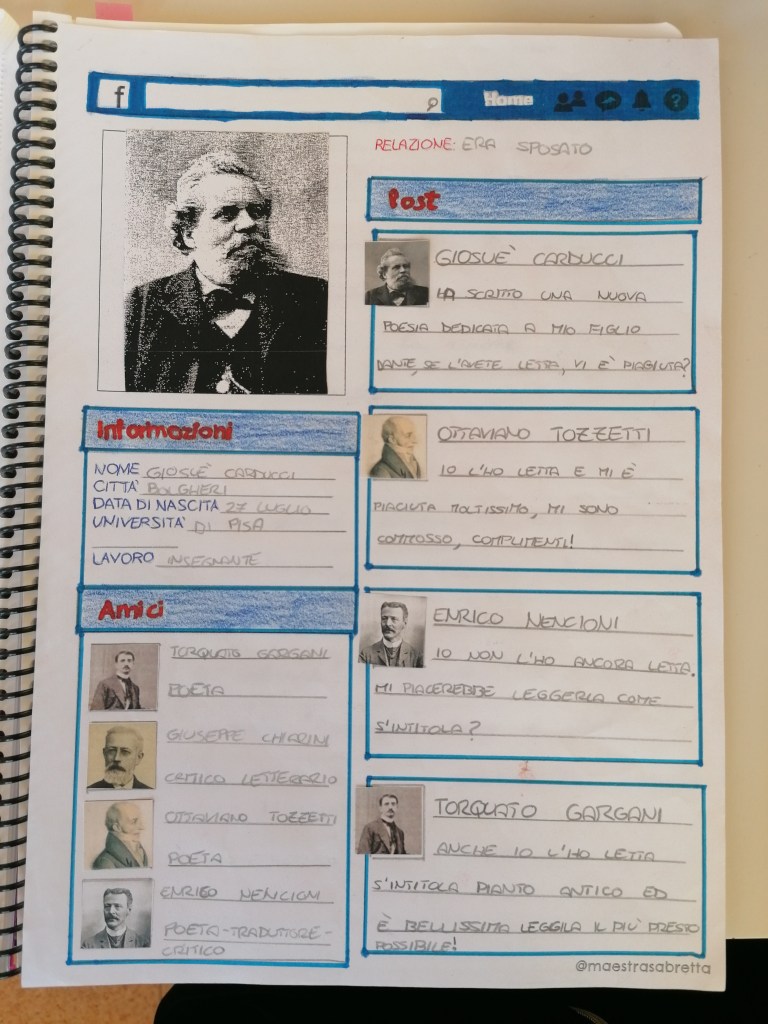 f
Home
?
RELAZIONE: ERA SPOSATO
Informazioni
NOME GIOSUÈ CARDUCCI
CITTÀ BOLGHERI
DATA DI NASCITA 27 LUGLIO
UNIVERSITÀ DI PISA
LAVORO INSEGNANTE
Amici
TORQUATO GARGANI
POETA
GIUSEPPE CHIARINI
CRITICO LETTERARIO
OTTAVIANO TOZZETTI
POETA
ENRICO NENCIONI
POETA-TRADUTTORE-
CRITICO
Post
GIOSUÈ CARDUCCI
HO SCRITTO UNA NUOVA
POESIA DEDICATA A MIO FIGLIO
DANTE, SE L'AVETE LETTA, VI È PIACIUTA?
OTTAVIANO TOZZETTI
IO L'HO LETTA E MI È
PIACIUTA MOLTISSIMO, MI SONO
COMMOSSO, COMPLIMENTI!
ENRICO NENCIONI
IO NON L'HO ANCORA LETTA.
MI PIACEREBBE LEGGERLA COME
S'INTITOLA?
TORQUATO GARGANI
ANCHE IO L'HO LETTA
S'INTITOLA PIANTO ANTICO ED
È BELLISSIMA LEGGILA IL PIÙ PRESTO
POSSIBILE!
@maestrasabretta